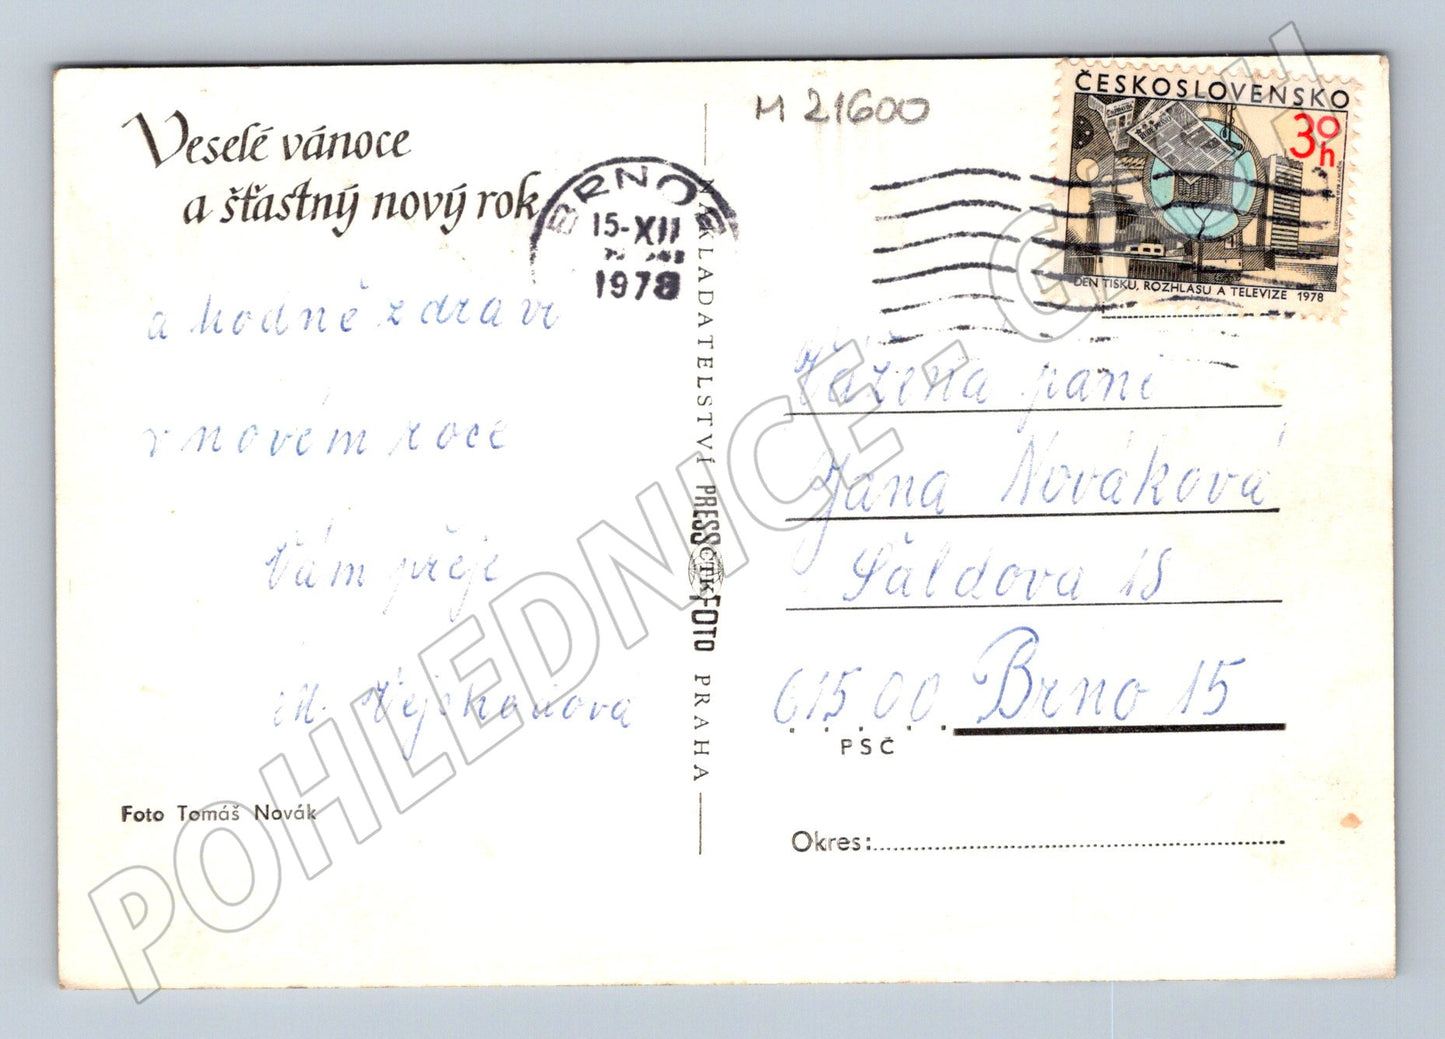 Veselé vánoce
a šťastný nový rok
a hodně zdraví
v novém roce
Vám přeje
M.
Foto Tomáš Novák
BRNO 2
15-XII
1978
NAKLADATELSTVÍ PRESSFOTO PRAHA
ČTK
M 21600
ČESKOSLOVENSKO
30h
DEN TISKU, ROZHLASU A TELEVIZE 1978
Vážená paní
Jana Nováková
Šaldova 18
615 00 Brno 15
PSČ
Okres:
POHLEDNICE - G